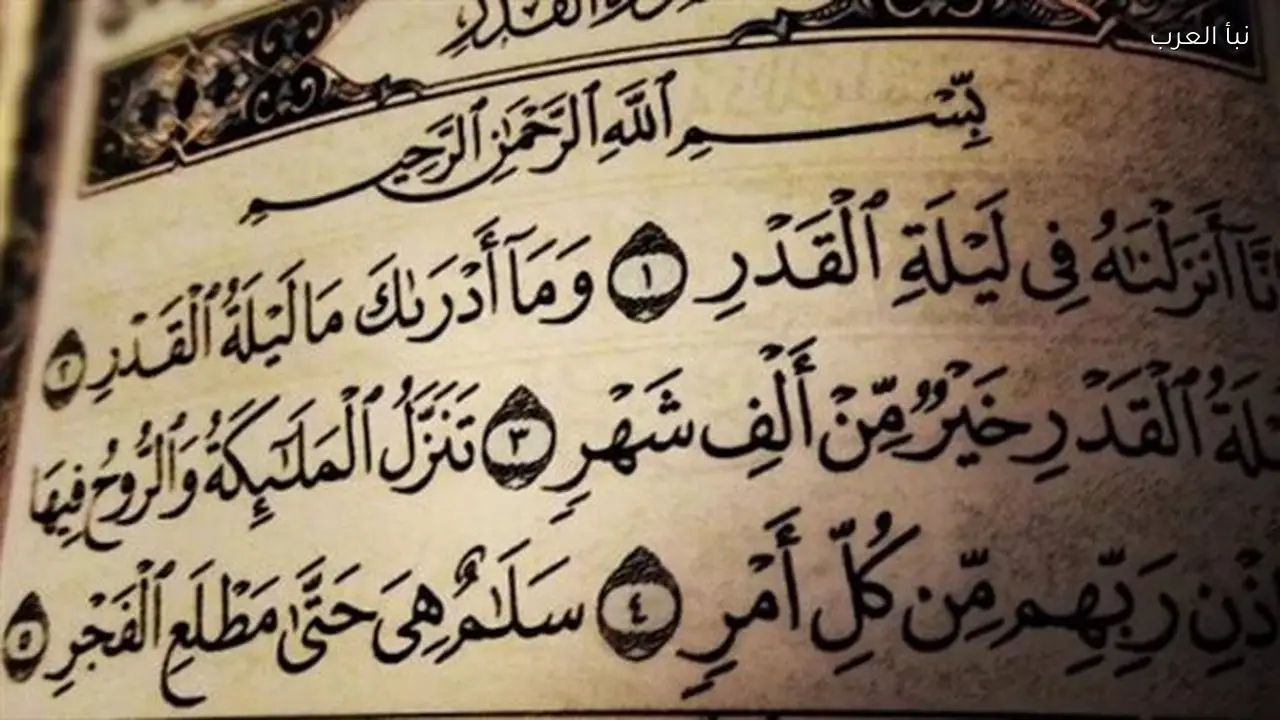 نبأ العرب
سورة القدر
بِسْمِ ٱللَّهِ ٱلرَّحْمَٰنِ ٱلرَّحِيمِ
نَّآ أَنزَلْنَٰهُ فِى لَيْلَةِ ٱلْقَدْرِ ١ وَمَآ أَدْرَىٰكَ مَا لَيْلَةُ ٱلْقَدْرِ ٢
لَةُ ٱلْقَدْرِ خَيْرٌ مِّنْ أَلْفِ شَهْرٍ ٣ تَنَزَّلُ ٱلْمَلَٰٓئِكَةُ وَٱلرُّوحُ فِيهَا
ذْنِ رَبِّهِم مِّن كُلِّ أَمْرٍ ٤ سَلَٰمٌ هِىَ حَتَّىٰ مَطْلَعِ ٱلْفَجْرِ ٥